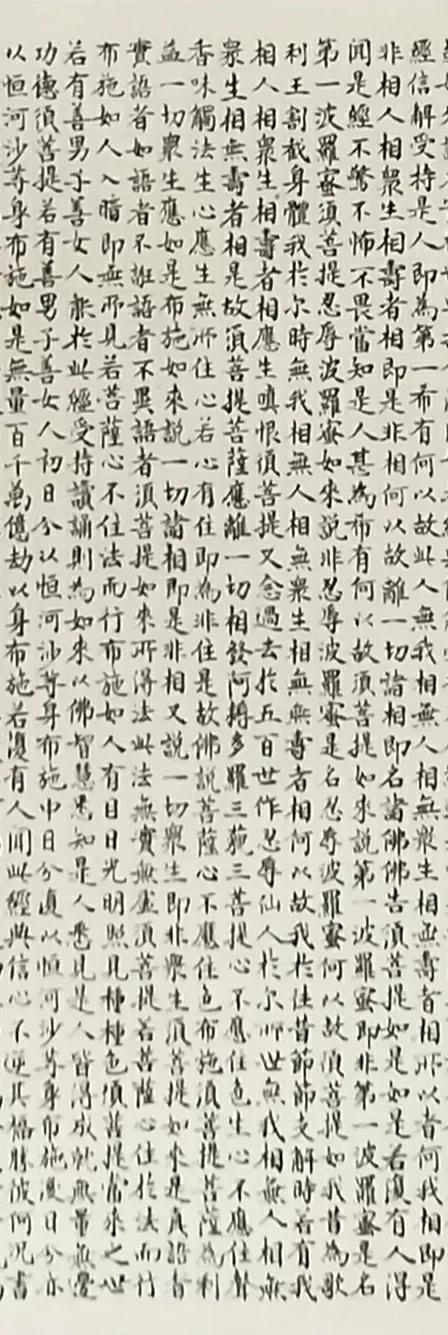 經信解受持是人即為第一希有何以故此人無我相無人相無衆生相無壽者相所以者何我相即是
非相人相衆生相壽者相即是非相何以故離一切諸相即名諸佛佛告須菩提如是如是若復有人得
聞是經不驚不怖不畏當知是人甚為希有何以故須菩提如來說第一波羅蜜即非第一波羅蜜是名
第一波羅蜜須菩提忍辱波羅蜜如來說非忍辱波羅蜜是名忍辱波羅蜜何以故須菩提如我昔為歌
利王割截身體我於尔時無我相無人相無衆生相無壽者相何以故我於往昔節節支解時若有我
相人相衆生相壽者相應生嗔恨須菩提又念過去於五百世作忍辱仙人於尔所世無我相無人相無
衆生相無壽者相是故須菩提菩薩應離一切相發阿耨多羅三藐三菩提心不應住色生心不應住聲
香味觸法生心應生無所住心若心有住即為非住是故佛說菩薩心不應住色布施須菩提菩薩為利
益一切衆生應如是布施如來說一切諸相即是非相又說一切衆生即非衆生須菩提如來是真語者
實語者如語者不誑語者不異語者須菩提如來所得法此法無實無虛須菩提若菩薩心住於法而行
布施如人入暗即無所見若菩薩心不住法而行布施如人有目日光明照見種種色須菩提當來之世
若有善男子善女人能於此經受持讀誦則為如來以佛智慧悉知是人悉見是人皆得成就無量無邊
功德須菩提若有善男子善女人初日分以恒河沙等身布施中日分復以恒河沙等身布施後日分亦
以恒河沙等身布施如是無量百千萬億劫以身布施若復有人聞此經典信心不逆其福勝彼何況書